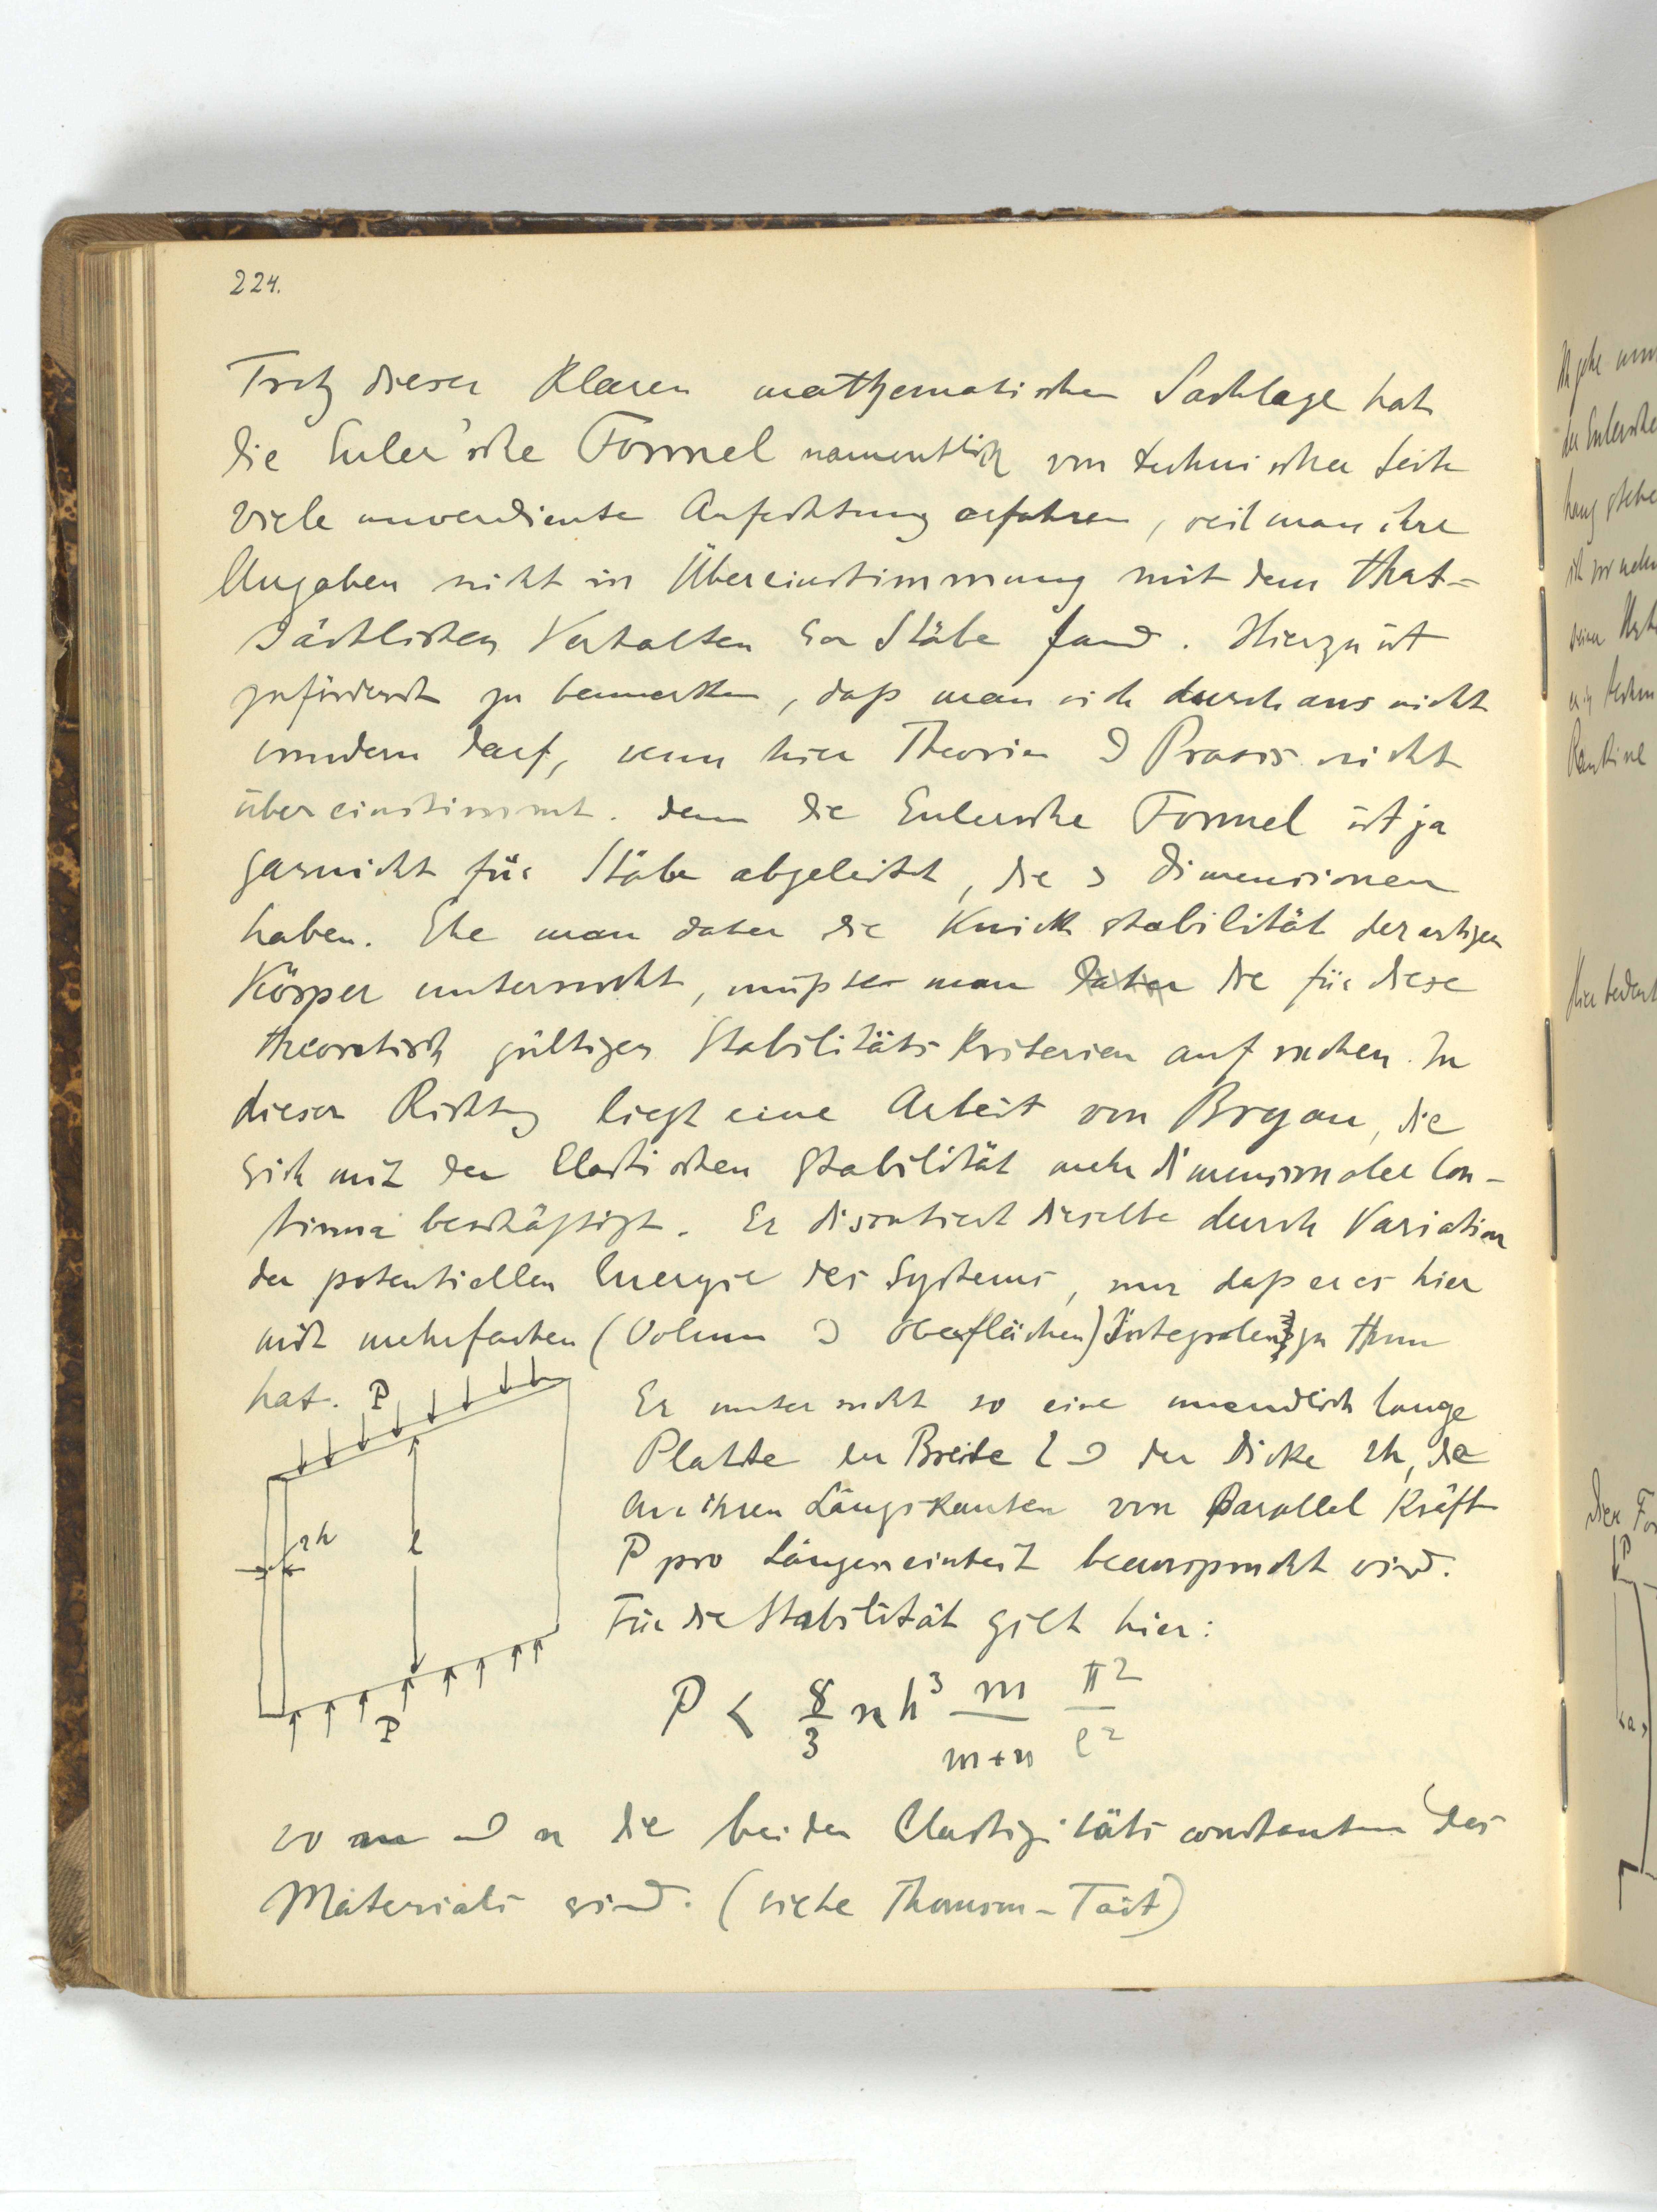 224.
Trotz dieser klaren mathematischen Sachlage hat
die Euler'sche Formel namentlich von technischer Seite
viele unverdiente Anfechtung erfahren, weil man ihre
Angaben nicht in Übereinstimmung mit dem that-
sächlichen Verhalten der Stäbe fand. Hierzu ist
zuförderst zu bemerken, daß man sich durchaus nicht
wundern darf, wenn hier Theorie & Praxis nicht
übereinstimmt. denn die Eulersche Formel ist ja
garnicht für Stäbe abgeleitet, die 3 Dimensionen
haben. Ehe man daher die Knickstabilität derartiger
Körper untersucht, müsste man daher die für diese
theoretisch gültigen Stabilitäts Kriterien aufsuchen. In
dieser Richtung liegt eine Arbeit von Bryan, die
sich mit der Elastischen Stabilität mehrdimensionaler Con-
tinua beschäftigt. Er discutiert dieselbe durch Variation
der potentiellen Energie des Systems, nur daß er es hier
mit mehrfachen (Volum & Oberflächen) Integralen zu thun
hat.
Er untersucht so eine unendlich lange
Platte der Breite l & der Dicke 2h, die
an ihren Längskanten von Parallel Kräften
P pro Längeneinheit beansprucht wird.
Für die Stabilität gilt hier:
P
2h
l
P
P < 8/3 n h³ m/(m+n) π²/l²
wo m und n die beiden Elastizitätsconstanten des
Materials sind. (siehe Thomson-Tait)